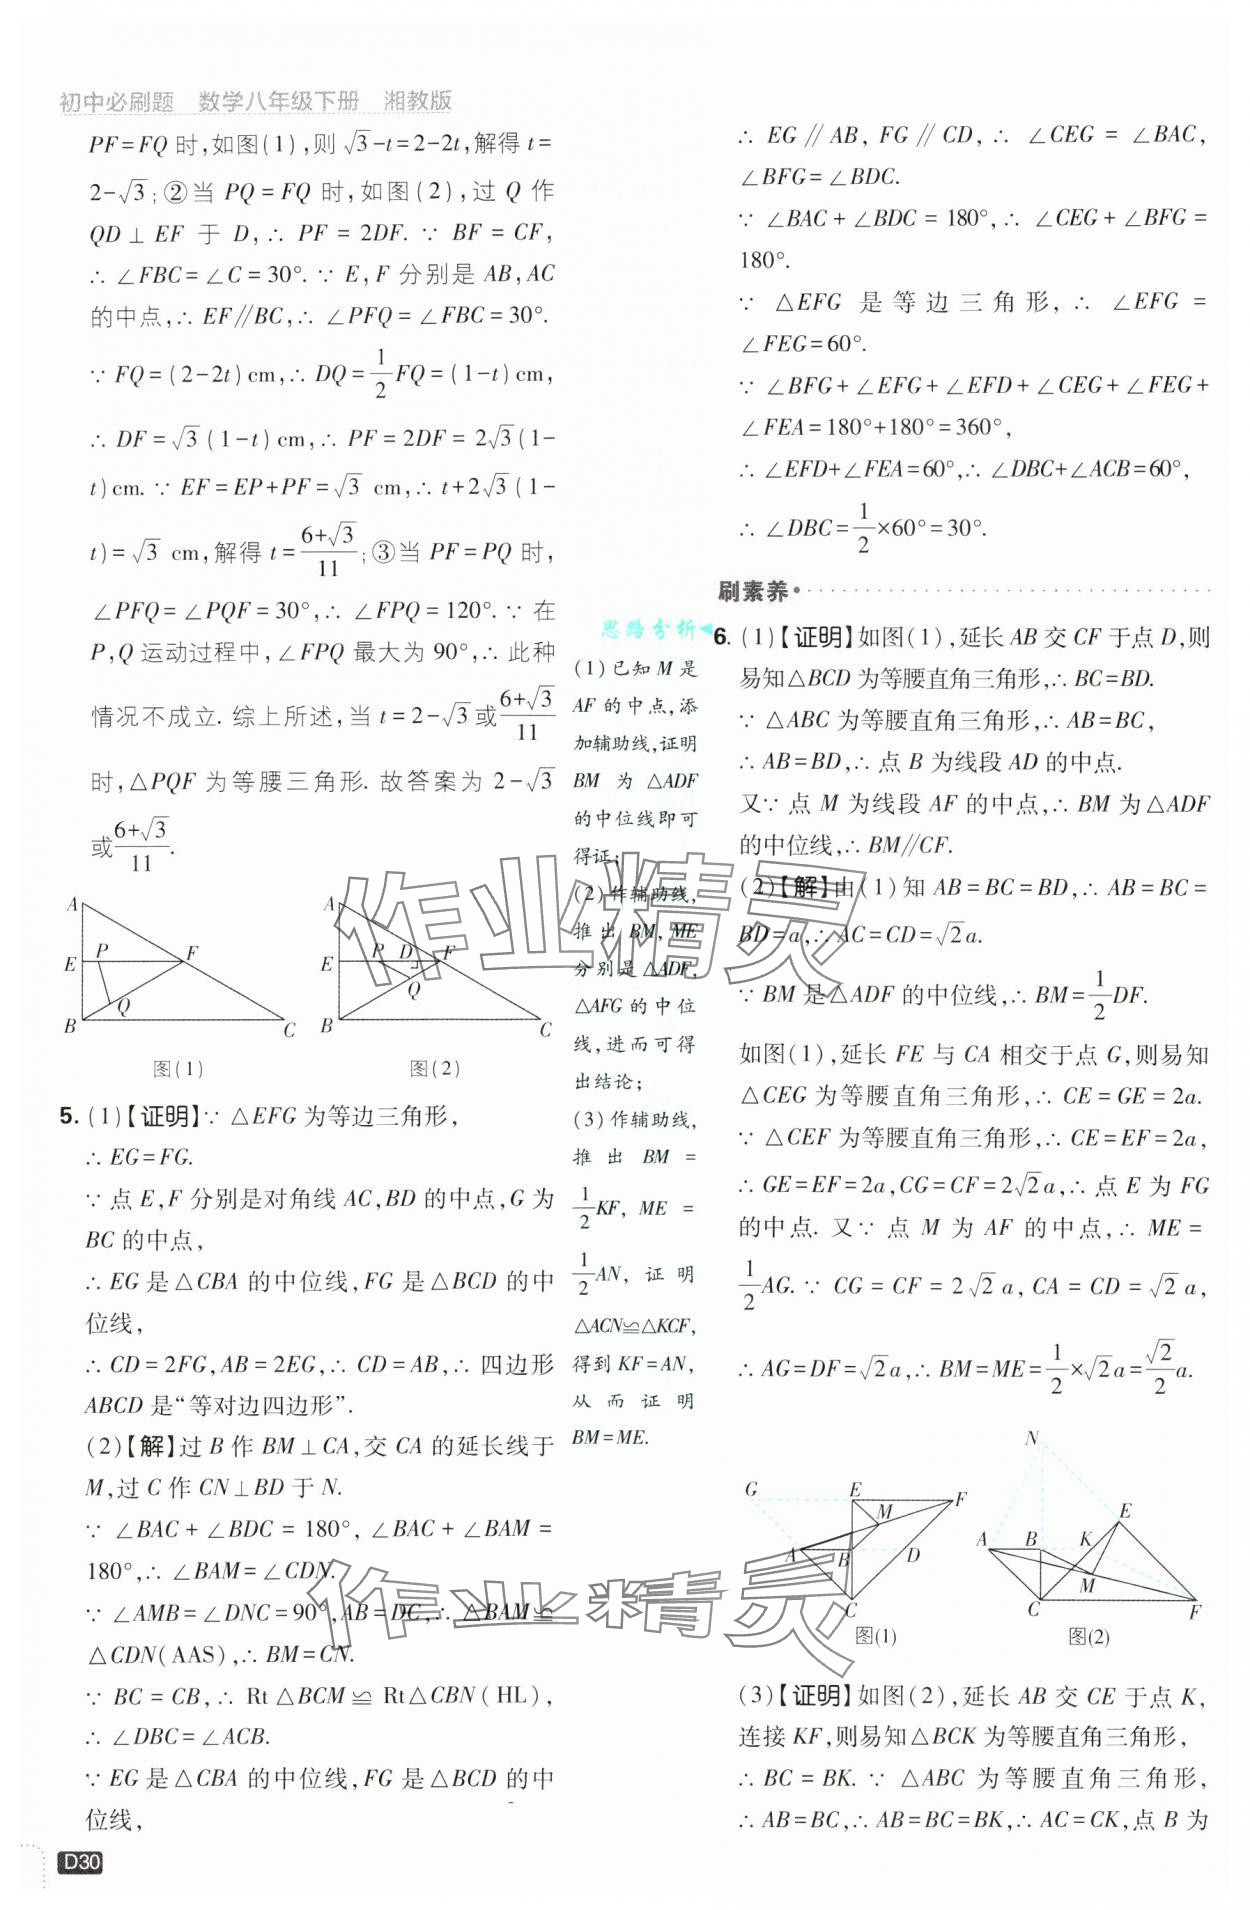 初中必刷题 数学八年级下册 湘教版
PF=FQ 时,如图(1),则√3-t=2-2t,解得 t=
2-√3;②当 PQ=FQ 时,如图(2),过 Q 作
QD⊥EF 于 D,∴ PF=2DF. ∵ BF=CF,
∴ ∠FBC=∠C=30°. ∵ E,F 分别是 AB,AC
的中点,∴ EF∥BC,∴ ∠PFQ=∠FBC=30°.
∵ FQ=(2-2t)cm,∴ DQ=1/2FQ=(1-t)cm,
∴ DF=√3(1-t)cm,∴ PF=2DF=2√3(1-
t)cm. ∵ EF=EP+PF=√3 cm,∴ t+2√3(1-
t)=√3 cm,解得 t=(6+√3)/11;③当 PF=PQ 时,
∠PFQ=∠PQF=30°,∴ ∠FPQ=120°. ∵ 在
P,Q 运动过程中,∠FPQ 最大为 90°,∴ 此种
情况不成立. 综上所述,当 t=2-√3或(6+√3)/11
时,△PQF 为等腰三角形. 故答案为 2-√3
或(6+√3)/11.
A
E P F
Q
B C
图(1)
A
E P D F
Q
B C
图(2)
5. (1)【证明】∵ △EFG 为等边三角形,
∴ EG=FG.
∵ 点 E,F 分别是对角线 AC,BD 的中点,G 为
BC 的中点,
∴ EG 是△CBA 的中位线,FG 是△BCD 的中
位线,
∴ CD=2FG,AB=2EG,∴ CD=AB,∴ 四边形
ABCD 是“等对边四边形”.
(2)【解】过 B 作 BM⊥CA,交 CA 的延长线于
M,过 C 作 CN⊥BD 于 N.
∵ ∠BAC+∠BDC=180°,∠BAC+∠BAM=
180°,∴ ∠BAM=∠CDN.
∵ ∠AMB=∠DNC=90°,AB=DC,∴ △BAM≌
△CDN(AAS),∴ BM=CN.
∵ BC=CB,∴ Rt△BCM≌Rt△CBN(HL),
∴ ∠DBC=∠ACB.
∵ EG 是△CBA 的中位线,FG 是△BCD 的中
位线,
D30
思路分析
(1)已知 M 是
AF 的中点,添
加辅助线,证明
BM 为 △ADF
的中位线即可
得证;
(2)作辅助线,
推出 BM,ME
分别是△ADF,
△AFG 的中位
线,进而可得
出结论;
(3)作辅助线,
推出 BM=
1/2KF, ME=
1/2AN, 证明
△ACN≌△KCF,
得到 KF=AN,
从而证明
BM=ME.
∴ EG∥AB,FG∥CD,∴ ∠CEG=∠BAC,
∠BFG=∠BDC.
∵ ∠BAC+∠BDC=180°,∴ ∠CEG+∠BFG=
180°.
∵ △EFG 是等边三角形,∴ ∠EFG=
∠FEG=60°.
∵ ∠BFG+∠EFG+∠EFD+∠CEG+∠FEG+
∠FEA=180°+180°=360°,
∴ ∠EFD+∠FEA=60°,∴ ∠DBC+∠ACB=60°,
∴ ∠DBC=1/2×60°=30°.
刷素养
6. (1)【证明】如图(1),延长 AB 交 CF 于点 D,则
易知△BCD 为等腰直角三角形,∴ BC=BD.
∵ △ABC 为等腰直角三角形,∴ AB=BC,
∴ AB=BD,∴ 点 B 为线段 AD 的中点.
又∵ 点 M 为线段 AF 的中点,∴ BM 为△ADF
的中位线,∴ BM∥CF.
(2)【解】由(1)知 AB=BC=BD,∴ AB=BC=
BD=a,∴ AC=CD=√2a.
∵ BM 是△ADF 的中位线,∴ BM=1/2DF.
如图(1),延长 FE 与 CA 相交于点 G,则易知
△CEG 为等腰直角三角形,∴ CE=GE=2a.
∵ △CEF 为等腰直角三角形,∴ CE=EF=2a,
∴ GE=EF=2a,CG=CF=2√2a,∴ 点 E 为 FG
的中点. 又∵ 点 M 为 AF 的中点,∴ ME=
1/2AG. ∵ CG=CF=2√2a,CA=CD=√2a,
∴ AG=DF=√2a,∴ BM=ME=1/2×√2a=√2/2a.
G E F
M
A B D
C
图(1)
N
E
A B K
M
C F
图(2)
(3)【证明】如图(2),延长 AB 交 CE 于点 K,
连接 KF,则易知△BCK 为等腰直角三角形,
∴ BC=BK. ∵ △ABC 为等腰直角三角形,
∴ AB=BC,∴ AB=BC=BK,∴ AC=CK,点 B 为
作业精灵
作业精灵